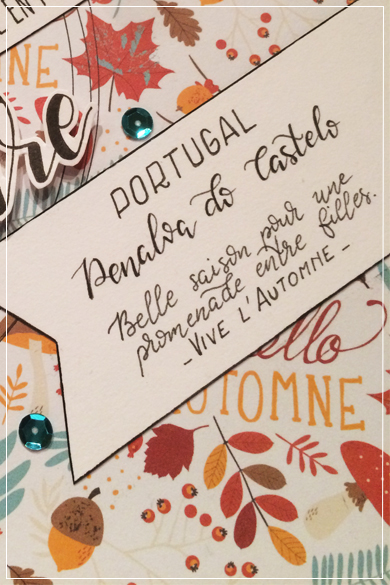 ENT
NE
re
PORTUGAL
Penalva do Castelo
Belle saison pour une
promenade entre filles.
-VIVE L'AUTOMNE-
ello
AUTOMNE